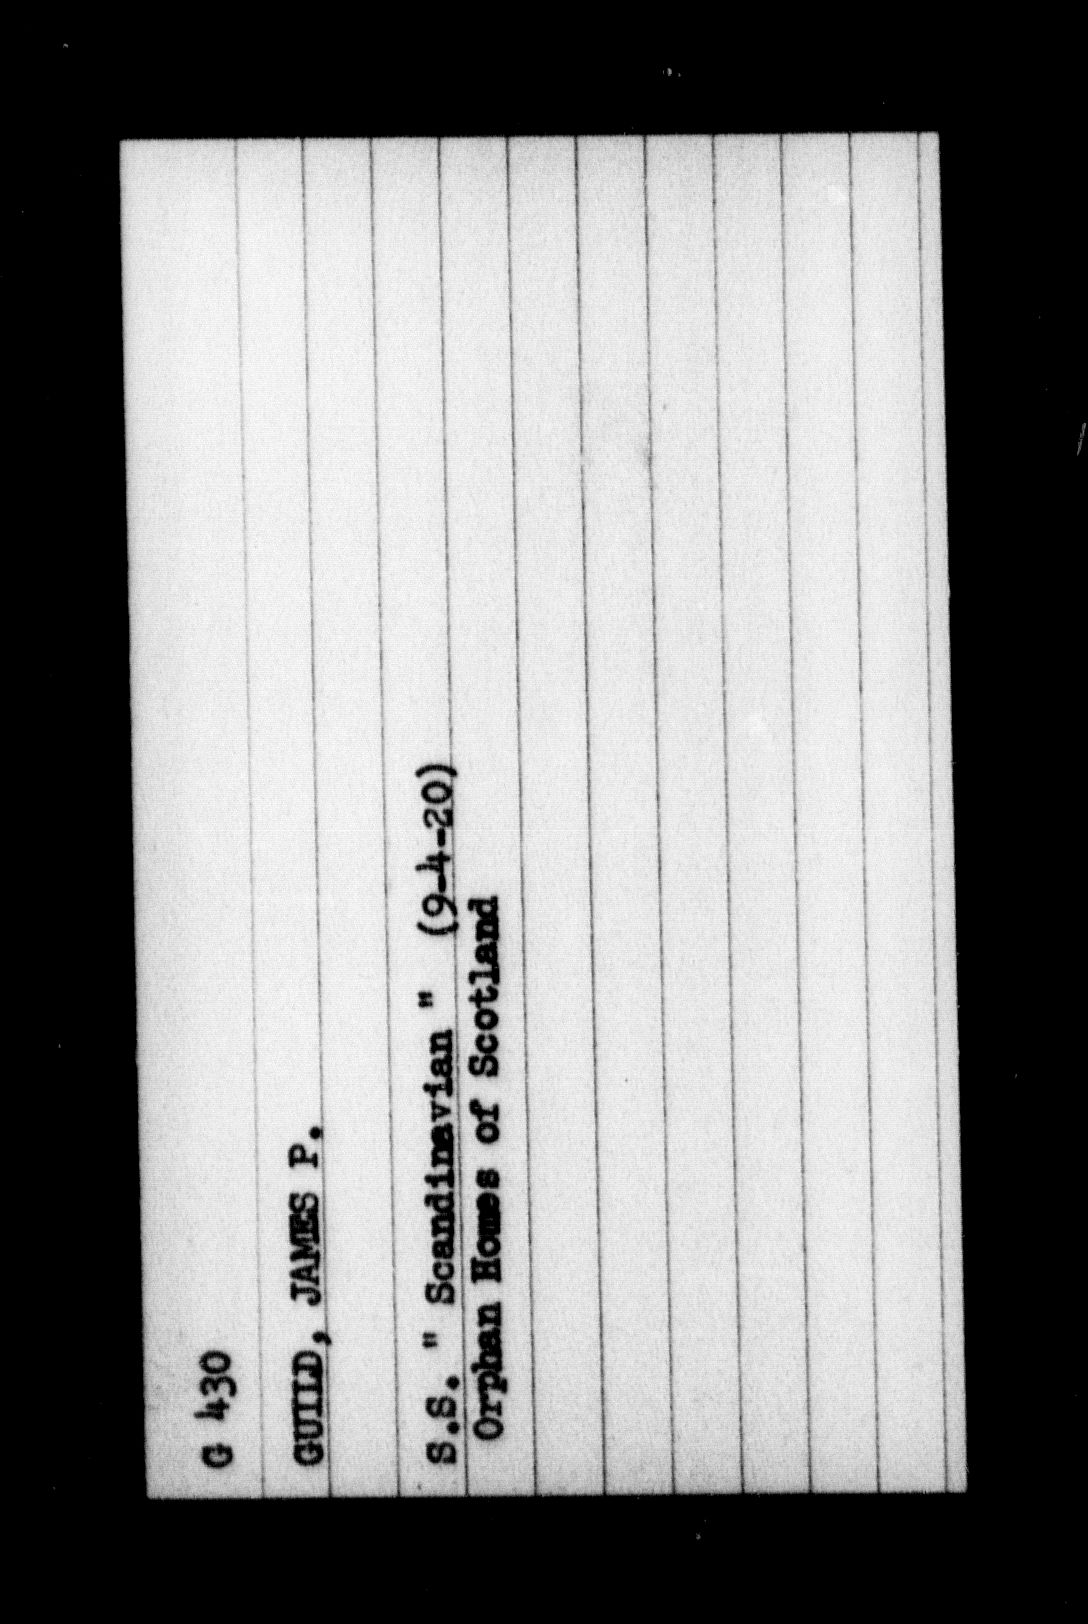 G 430
GUILD, JAMES P.
S.S. " Scandinavian " (9-4-20)
Orphan Homes of Scotland